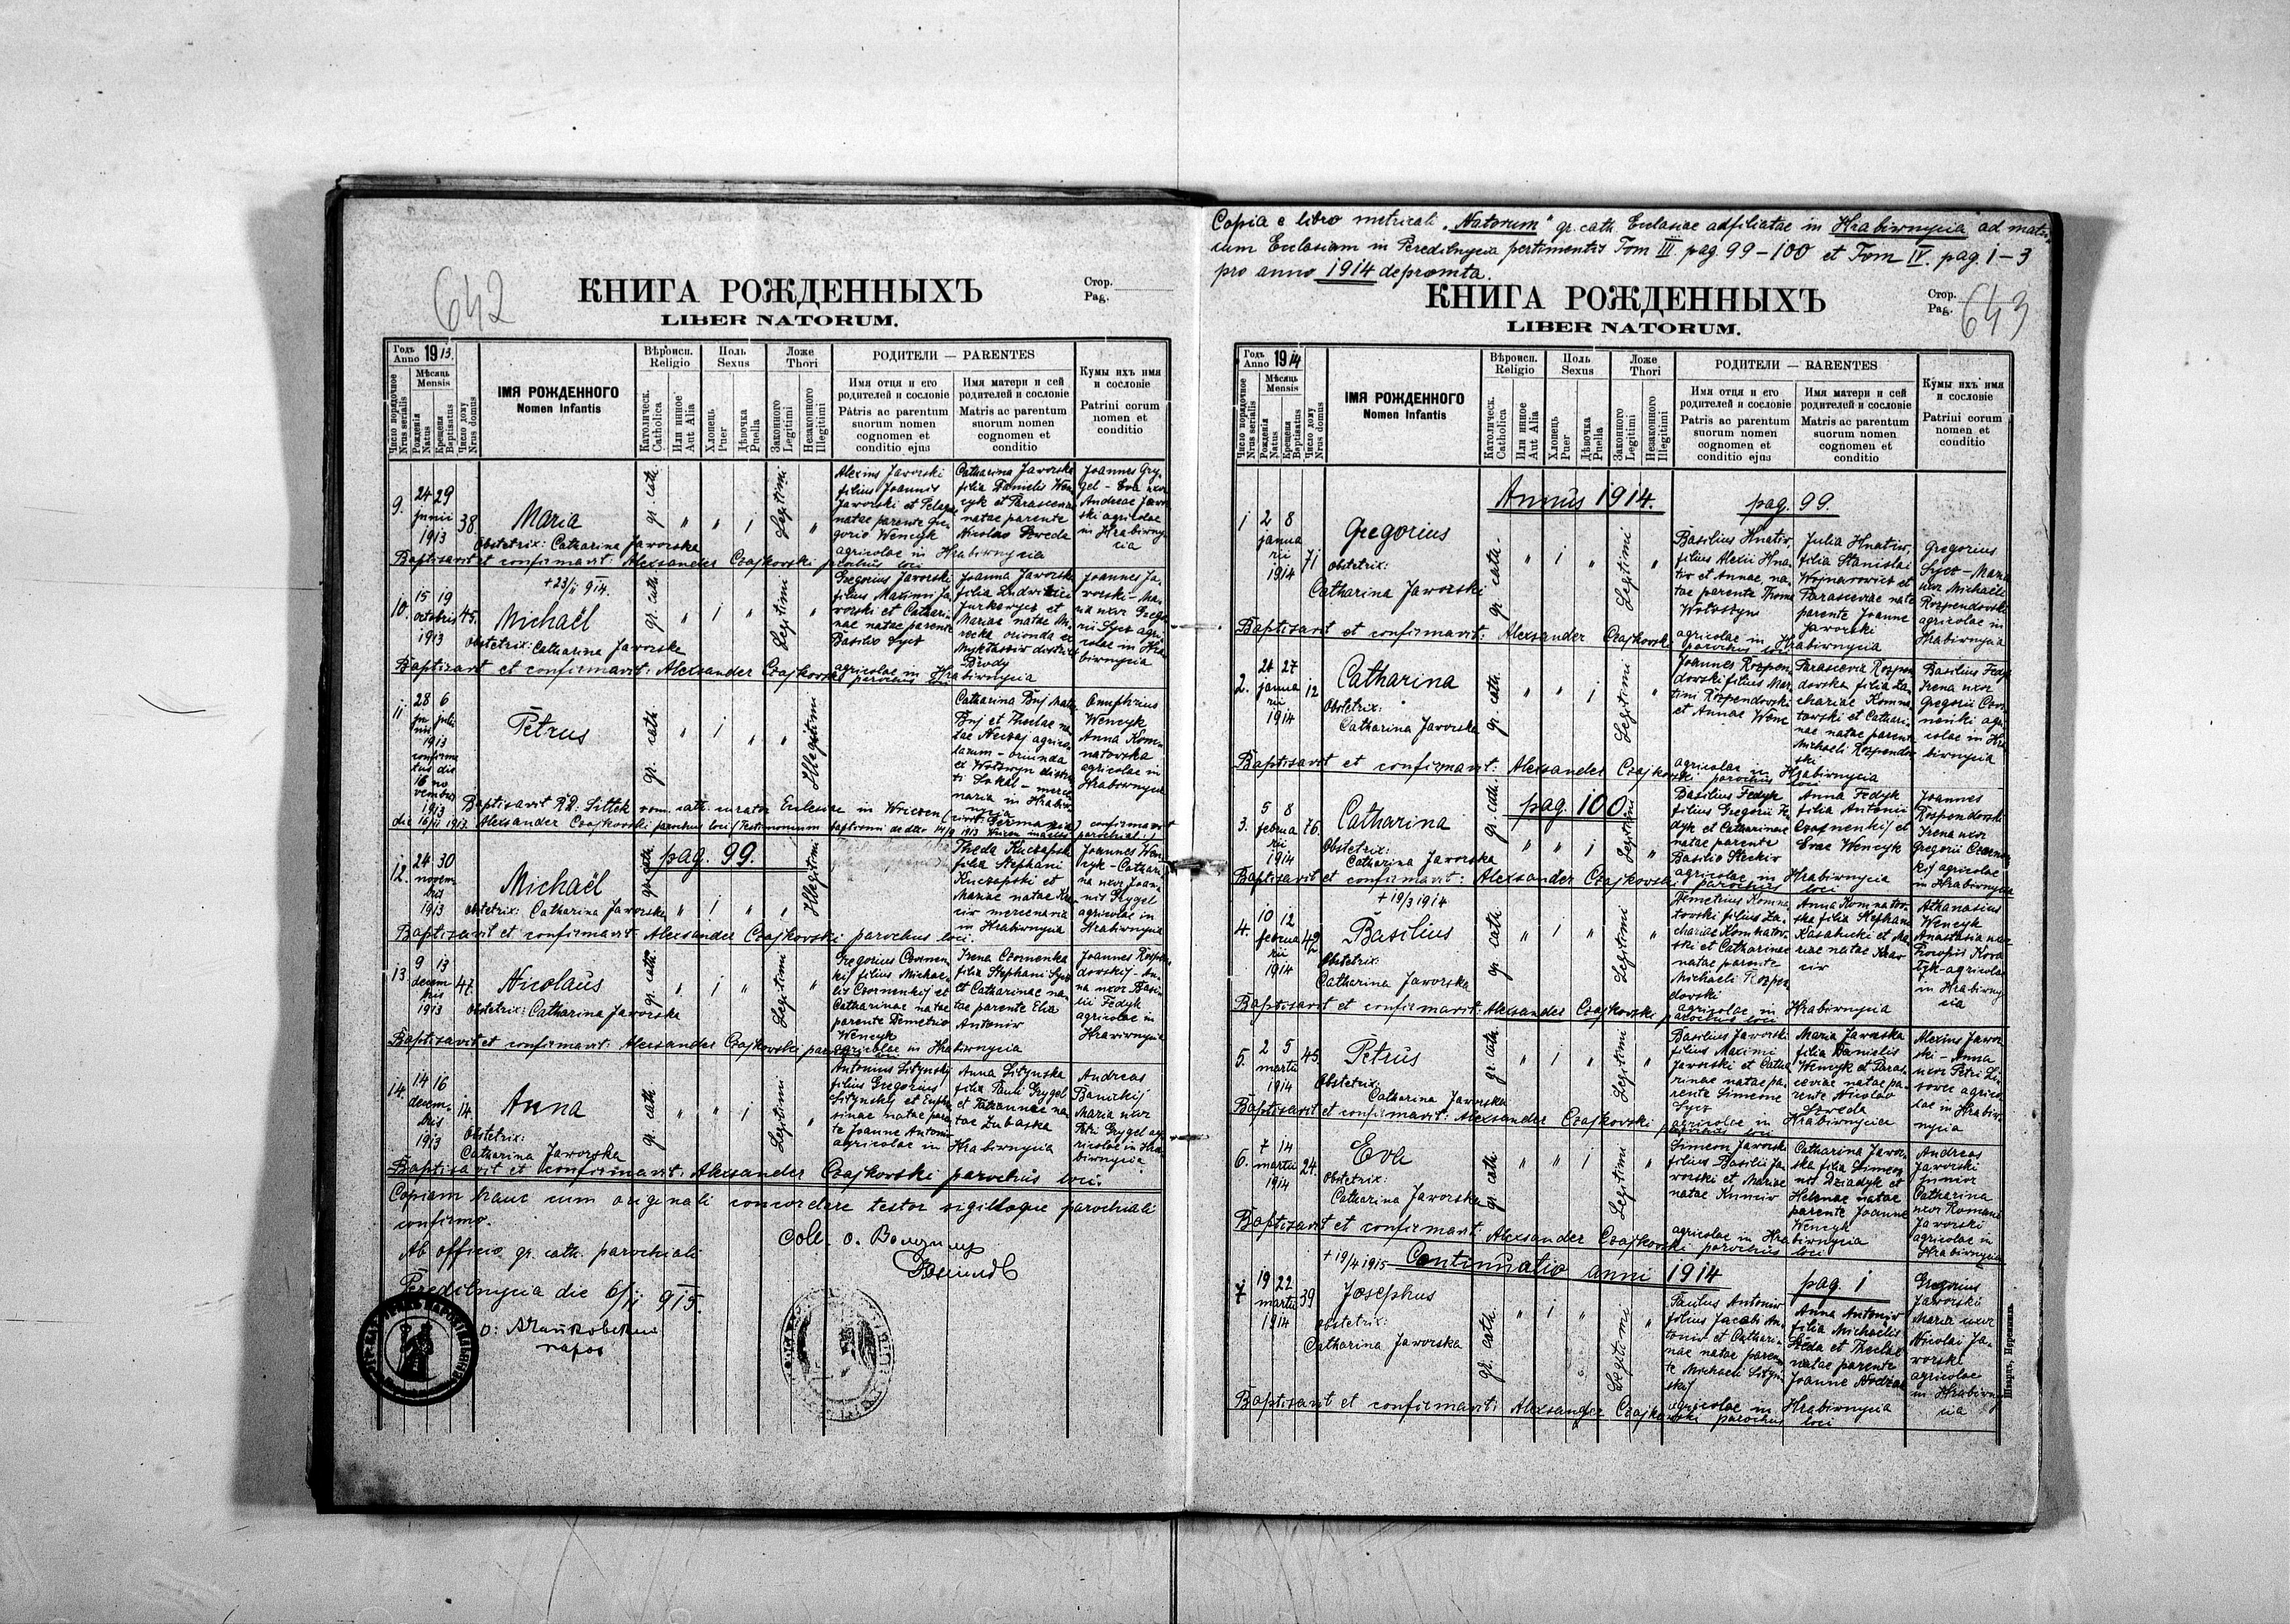 642
КНИГА РОЖДЕННЫХЪ
LIBER NATORUM.
Стор.
Pag.
Годъ
Anno 1913.
Мѣсяць
Mensis
Число порядочное
Nrus serialis
Рожденія
Natus
Крещенія
Baptisatus
Число дому
Nrus domus
ІМЯ РОЖДЕННОГО
Nomen Infantis
Вѣроисп.
Religio
Католическ.
Catholica
Или инное
Aut Alia
Полъ
Sexus
Хлопець
Puer
Дѣвочка
Puella
Ложе
Thori
Законного
Legitimi
Незаконного
Illegitimi
РОДИТЕЛИ — PARENTES
Имя отця и его
родителей и сословіе
Patris ac parentum
suorum nomen
cognomen et
conditio ejus
Имя матери и сей
родителей и сословіе
Matris ac parentum
suorum nomen
cognomen et
conditio
Кумы ихъ имя
и сословіе
Patrini corum
nomen et
conditio
9.
24 29
junii
1913
38
Maria
Obstetrix: Catharina Jaworska
gr. cath.
" " i
Legitimi
"
Alexius Jaworski
filius Joannis
Jaworski et Pelagiae
natae parente Gre-
gorio Wencyk
Catharina Jaworska
filia Danielis Wen-
cyk et Parascevae
natae parente
Nicolao Szweda
agricolae in Hrabiwnycia
Joannes Gry-
gel - Eva uxor
Andreae Jawor-
ski agricolae
in Hrabiwny-
cia
Baptisavit et confirmavit: Alexander Czajkovski parochus loci
10.
15 19
octobris
1913
45.
+ 23/II 914.
Michaël
Obstetrix: Catharina Jaworska
gr. cath
" i "
Legitimi
"
Gregorius Jaworski
filius Maximi Ja-
worski et Cathari-
nae natae parente
Basilio Syct
Joanna Jaworska
filia Ludovici
Jurkowycz et
Mariae natae
oriunda ex
district
Brody
agricolae in Hrabiwnycia
Joannes Ja-
worski - Ma-
ria uxor Grego-
rii Syct agri-
colae in Hra-
biwnycia
Baptisavit et confirmavit: Alexander Czajkovski parochus loci
11
28 6
ju- julii
nii
1913
confirma-
tus die
16 no-
vembris
1913
Petrus
gr. cath.
" i " "
Illegitimi
Catharina Buj
Buj et Theclae na-
tae agrico-
larum - oriunda
ex distric-
ti Sokal - merce-
naria in Hrabiw-
nycia
Onuphrius
Wencyk
Anna Kom-
natowska
agricolae in
Hrabiwnycia
Baptisavit R.D. Sittek rom. cath. curator Ecclesiae in Wriezen (civit. Germania) confirmavit
die 16/11 1913 Alexander Czajkovski parochus loci
pag. 99.
12.
24 30
novem-
bris
1913
Michaël
Obstetrix: Catharina Jaworska
gr. cath.
" i " "
Illegitimi
Theda Kuczapska
filia Stephani
Kuczapski et
Mariae natae Kra-
ciw mercenaria
in Hrabiwnycia
Joannes Wen-
cyk - Cathari-
na uxor Joan-
nis Grygel
agricolae in
Hrabiwnycia
Baptisavit et confirmavit: Alexander Czajkovski parochus loci.
13.
9 13
decem-
bris
1913
47.
Nicolaus
Obstetrix: Catharina Jaworska
gr. cath.
" i "
Legitimi
"
Gregorius Czornen-
kij filius Michae-
lis Czornenkij et
Catharinae natae
parente Demetrio
Wencyk
Irena Czornenka
filia Stephani Syct
et Catharinae na-
tae parente Elia
Antoniw
agricolae in Hrabiwnycia
Joannes Rozpen-
dowskij - An-
na uxor Basi-
lii Fedyk
agricolae in
Hrawiwnycia
Baptisavit et confirmavit: Alexander Czajkovski parochus loci
14.
14 16
decem-
bris
1913
14.
Anna
Obstetrix:
Catharina Jaworska
gr. cath
" " i
Legitimi
"
Antonius Litynskij
filius Gregorius
Litynskij et Euphro-
sinae natae paren-
te Joanne Antoniw
Anna Litynska
filia Pauli Grygel
et Tatiannae na-
tae Zubaska
agricolae in Hrabiwnycia
Andreas
Banickij
Maria uxor
Petri Grygel ag-
ricolae in Hra-
biwnycia
Baptisavit et confirmavit: Alexander Czajkovski parochus loci.
Copiam hanc cum originali concordare testor sigilloque parochiali
confirmo.
Ab officio gr. cath. parochiali
Peredilnycia die 6/II 915.
643
Copia e libro metricali „Natorum" gr. cath. Ecclesiae adfiliatae in Hrabiwnycia ad matri-
cem Ecclesiam in Peredilnycia pertinentis Tom III pag. 99 - 100 et Tom IV. pag. 1 - 3
pro anno 1914 depromta.
КНИГА РОЖДЕННЫХЪ
LIBER NATORUM.
Стор.
Pag.
Годъ
Anno 1914
Мѣсяць
Mensis
Число порядочное
Nrus serialis
Рожденія
Natus
Крещенія
Baptisatus
Число дому
Nrus domus
ІМЯ РОЖДЕННОГО
Nomen Infantis
Вѣроисп.
Religio
Католическ.
Catholica
Или инное
Aut Alia
Полъ
Sexus
Хлопець
Puer
Дѣвочка
Puella
Ложе
Thori
Законного
Legitimi
Незаконного
Illegitimi
РОДИТЕЛИ — PARENTES
Имя отця и его
родителей и сословіе
Patris ac parentum
suorum nomen
cognomen et
conditio ejus
Имя матери и сей
родителей и сословіе
Matris ac parentum
suorum nomen
cognomen et
conditio
Кумы ихъ имя
и сословіе
Patrini corum
nomen et
conditio
Annus 1914.
pag. 99.
1
2 8
janua-
rii
1914
71
Gregorius
Obstetrix:
Catharina Jaworski
gr. cath.
" i "
Legitimi
"
Basilius Hnatiw,
filius Alexii Hna-
tiw et Annae, na-
tae parente Thoma
Wolostyn
Julia Hnatiw,
filia Stanislai
Wojnarowicz et
Parasceviae natae
parente Joanne
Jaworski
agricolae in Hrabiwnycia
Gregorius
Syct - Maria
uxor Michaeli
Rozpendovski
agricolae in
Hrabiwnycia
Baptisavit et confirmavit: Alexsander Czajkovski parochus loci
2.
24 27
janua-
rii
1914
12
Catharina
Obstetrix:
Catharina Jaworska
gr. cath.
" " i
Legitimi
"
Joannes Rozpen-
dowski filius Mar-
tini Rozpendovski
et Annae Wenc
Parascevia Rozpen-
dowska filia Za-
chariae Komna-
towski et Cathari-
nae natae parente
Michaeli Rozpendow-
ski
agricolae in Hrabiwnycia
Basilius Fedyk
Irena uxor
Gregorii Czor-
nenki agri-
colae in Hra-
biwnycia
Baptisavit et confirmavit: Alexsander Czajkovski parochus loci
pag. 100.
3.
5 8
februa-
rii
1914
76.
Catharina
Obstetrix:
Catharina Jaworska
gr. cath.
" " i
Legitimi
"
Basilius Fedyk
filius Gregorii Fe-
dyk et Catharinae
natae parente
Basilio Steckiw
Anna Fedyk
filia Antonii
Czornenkij et
Evae Wencyk
agricolae in Hrabiwnycia
Joannes
Rozpendowski
Irena uxor
Gregorii Czornen-
kij agricolae
in Hrabiwnycia
Baptisavit et confirmavit: Alexsander Czajkovski parochus loci
+ 19/3 1914
4.
10 12
februa-
rii
1914
42
Basilius
Obstetrix:
Catharina Jaworska
gr. cath
" i "
Legitimi
"
Demetrius Komna-
towski filius Za-
chariae Komnatow-
ski et Catharinae
natae parente
Michaeli Rozpen-
dowski
Anna Komnatow-
ska filia Stephani
Kasahucki et Ma-
riae natae Kraw-
ciw
agricolae in Hrabiwnycia
Athanasius
Wencyk
Anastasia uxor
Procopii Kova-
lyk-agricolae
in Hrabiwny-
cia
Baptisavit et confirmavit: Alexsander Czajkovski parochus loci
5.
2 5
martii
1914
45.
Petrus
Obstetrix:
Catharina Jaworska
gr. cath.
" i "
Legitimi
"
Basilius Jaworski
filius Maximi
Jaworski et Catha-
rinae natae pa-
rente Simeone
Syct
Maria Jaworska
filia Danielis
Wencyk et Paras-
ceviae natae pa-
rente Nicolao
Szweda
agricolae in Hrabiwnycia
Alexius Jawor-
ski - Anna
uxor Petri Li-
sowec agrico-
lae in Hrabiw-
nycia
Baptisavit et confirmavit: Alexsander Czajkovski parochus loci
6.
7 14
martii
1914
24.
Eva
Obstetrix:
Catharina Jaworska
gr. cath.
" " i
Legitimi
"
Simeon Jaworski
filius Basilii Ja-
worski et Mariae
natae Kunciw
Catharina Jawor-
ska filia Simeo-
nis Dziadyk et
Helenae natae
parente Joanne
Wencyk
agricolae in Hrabiwnycia
Andreas
Jaworski
junior
Catharina
uxor Romani
Jaworski
agricolae in
Hrabiwnycia
Baptisavit et confirmavit: Alexsander Czajkovski parochus loci
+ 19/4 1915
Continuatio anni 1914
pag. 1
7
19 22
martii
1914
39
Josephus
Obstetrix:
Catharina Jaworska
gr. cath.
" i "
Legitimi
"
Paulus Antoniw
filius Jacobi An-
toniw et Cathari-
nae natae paren-
te Michaeli Lityn-
skij
Anna Antoniw
filia Michaelis
et Theclae
natae parente
Joanne
agricolae in Hrabiwnycia
Gregorius
Jaworski
Maria uxor
Nicolai Ja-
worski
agricolae
in Hrabiwny-
cia
Baptisavit et confirmavit: Alexsander Czajkovski parochus loci